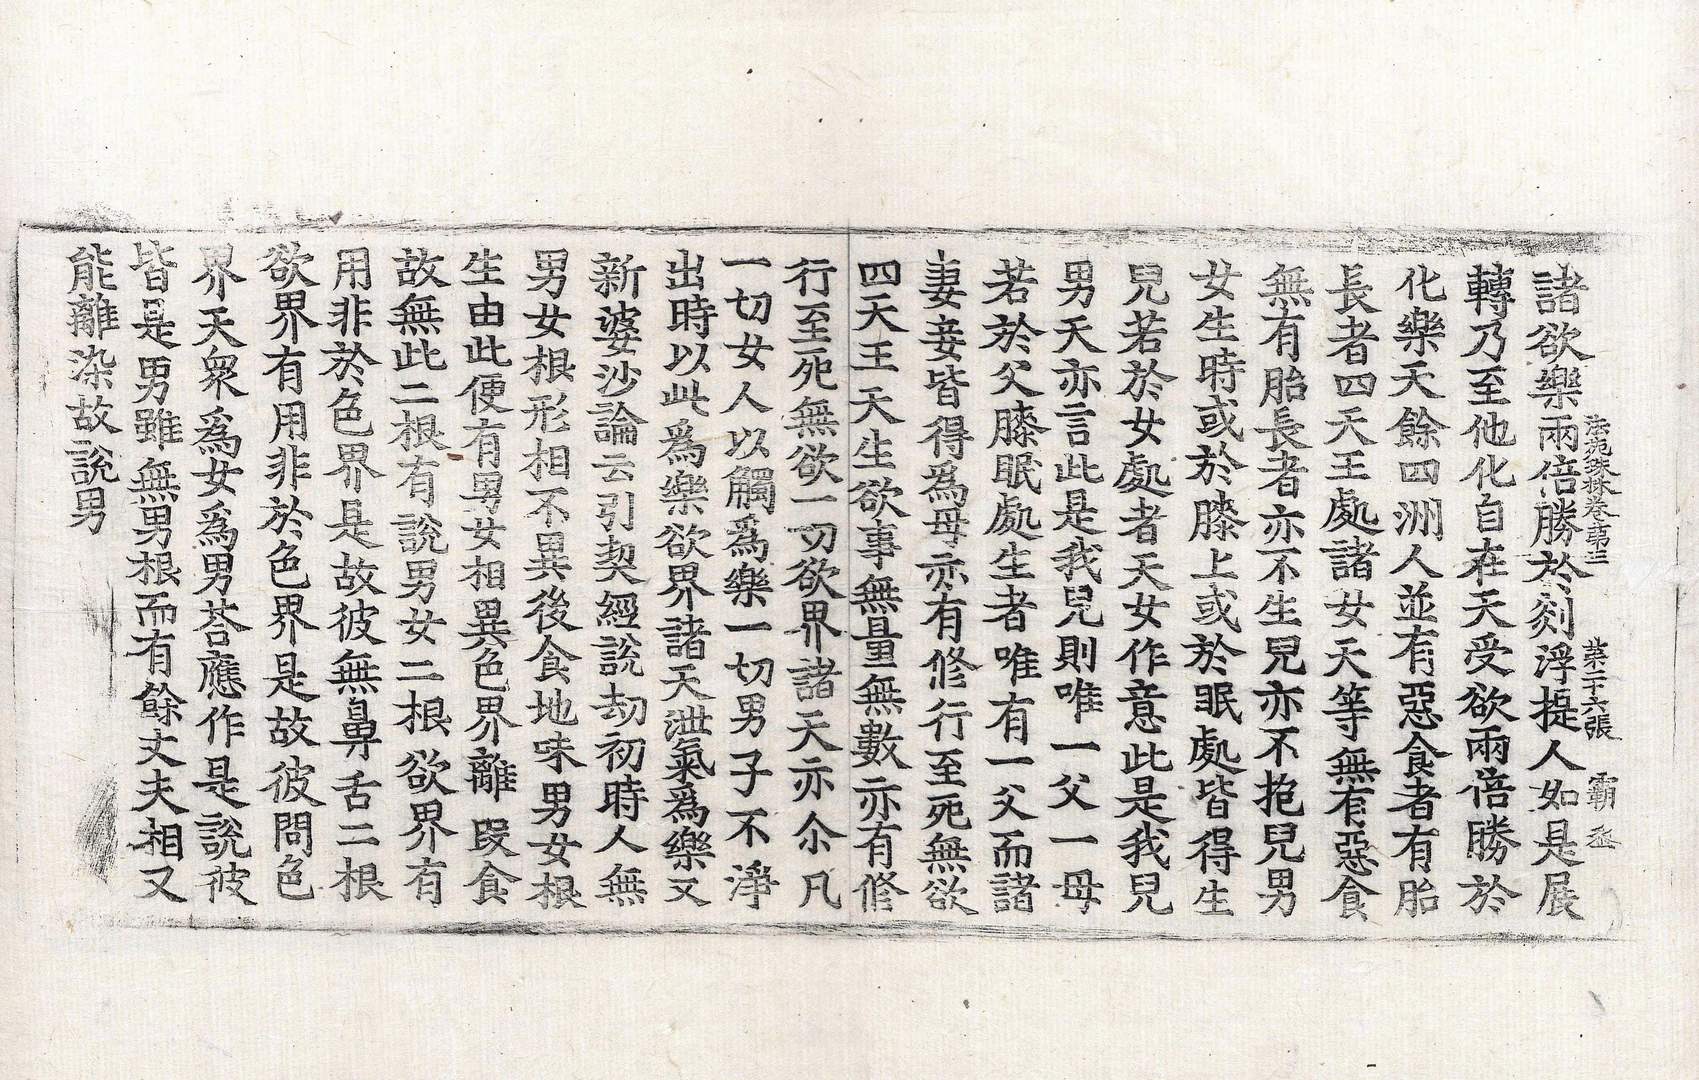 法苑珠林卷第三 第二十六張 覇 丞
諸欲樂兩倍勝於剡浮提人如是展
轉乃至他化自在天受欲兩倍勝於
化樂天餘四洲人並有惡食者有胎
長者四天王處諸女天等無有惡食
無有胎長者亦不生兒亦不抱兒男
女生時或於膝上或於眠處皆得生
兒若於女處者天女作意此是我兒
男天亦言此是我兒則唯一父一母
若於父膝眠處生者唯有一父而諸
妻妾皆得爲母亦有修行至死無欲
四天王天生欲事無量無數亦有修
行至死無欲一切欲界諸天亦尒凡
一切女人以觸爲樂一切男子不淨
出時以此爲樂欲界諸天泄氣爲樂又
新婆沙論云引契經說劫初時人無
男女根形相不異後食地味男女根
生由此便有男女相異色界離段食
故無此二根有說男女二根欲界有
用非於色界是故彼無鼻舌二根
欲界有用非於色界是故彼問色
界天衆爲女爲男荅應作是說彼
皆是男雖無男根而有餘丈夫相又
能離染故說男